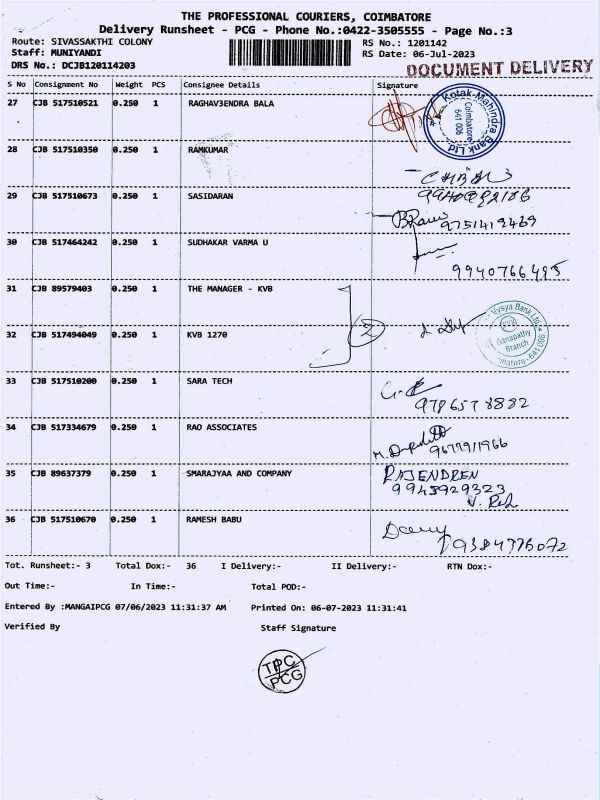 THE PROFESSIONAL COURIERS, COIMBATORE
Delivery Runsheet - PCG - Phone No.:0422-3505555 - Page No.:3
Route: SIVASSAKTHI COLONY
RS No.: 1201142
Staff: MUNIYANDI
RS Date: 06-Jul-2023
DRS No.: DCJB120114203
DOCUMENT DELIVERY
S No Consignment No Weight PCS Consignee Details Signature
27 CJB 517510521 0.250 1 RAGHAV3ENDRA BALA
Kotak Mahindra Bank Ltd.
Coimbatore
641 006
28 CJB 517510350 0.250 1 RAMKUMAR
29 CJB 517510673 0.250 1 SASIDARAN
9751419469
30 CJB 517464242 0.250 1 SUDHAKAR VARMA U
9940766495
31 CJB 89579403 0.250 1 THE MANAGER - KVB
Vysya Bank Ltd.
KVB
Ganapathy
Branch
641 006
2
32 CJB 517494049 0.250 1 KVB 1270
33 CJB 517510200 0.250 1 SARA TECH
9786578882
34 CJB 517334679 0.250 1 RAO ASSOCIATES
35 CJB 89637379 0.250 1 SMARAJYAA AND COMPANY
RAJENDREN
9943929323
36 CJB 517510670 0.250 1 RAMESH BABU
9384776072
Tot. Runsheet:- 3 Total Dox:- 36 I Delivery:- II Delivery:- RTN Dox:-
Out Time:- In Time:- Total POD:-
Entered By :MANGAIPCG 07/06/2023 11:31:37 AM Printed On: 06-07-2023 11:31:41
Verified By Staff Signature
TPC
PCG